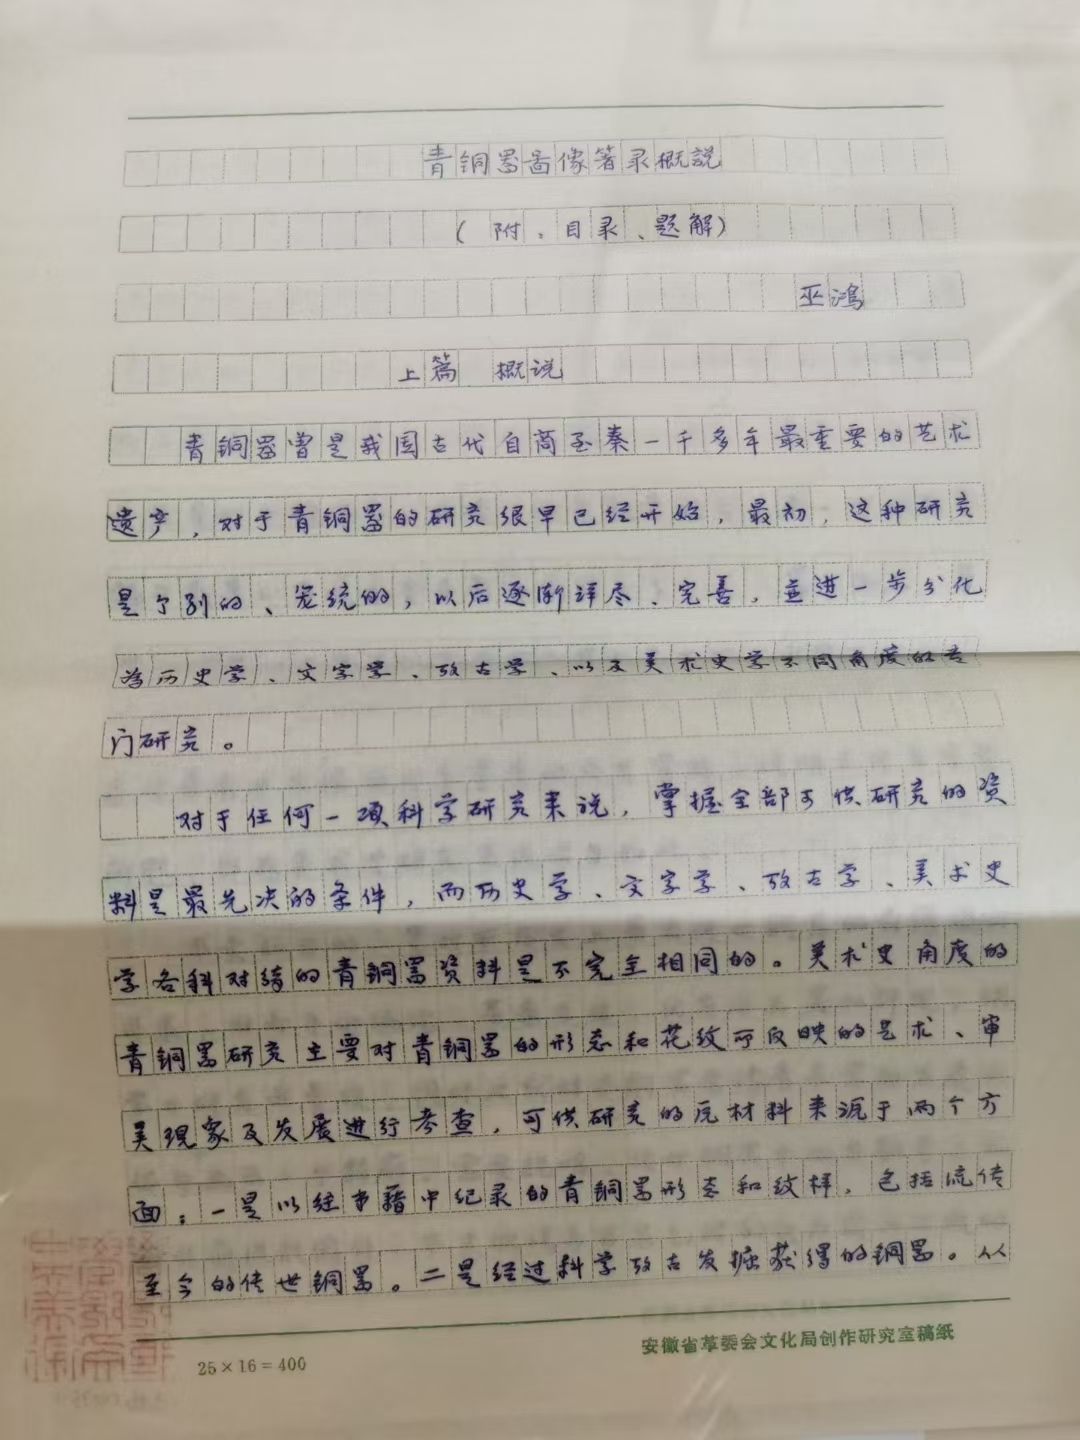 青铜器图像著录概説
（附：目录、题解）
巫鸿
上篇 概说
青铜器曾是我国古代自商至秦一千多年最重要的艺术
遗产，对于青铜器的研究很早已经开始，最初，这种研究
是个别的、笼统的，以后逐渐详尽、完善，並进一步分化
为历史学、文字学、攷古学、以及美术史学不同角度的专
门研究。
对于任何一项科学研究来说，掌握全部可供研究的资
料是最先决的条件，而历史学、文字学、攷古学、美术史
学各科对待的青铜器资料是不完全相同的。美术史角度的
青铜器研究主要对青铜器的形态和花纹所反映的艺术、审
美现象及发展进行考查，可供研究的原材料来源于两个方
面：一是以往书籍中纪录的青铜器形态和纹样，包括流传
至今的传世铜器。二是经过科学攷古发掘获得的铜器。从
25×16=400
安徽省革委会文化局创作研究室稿纸